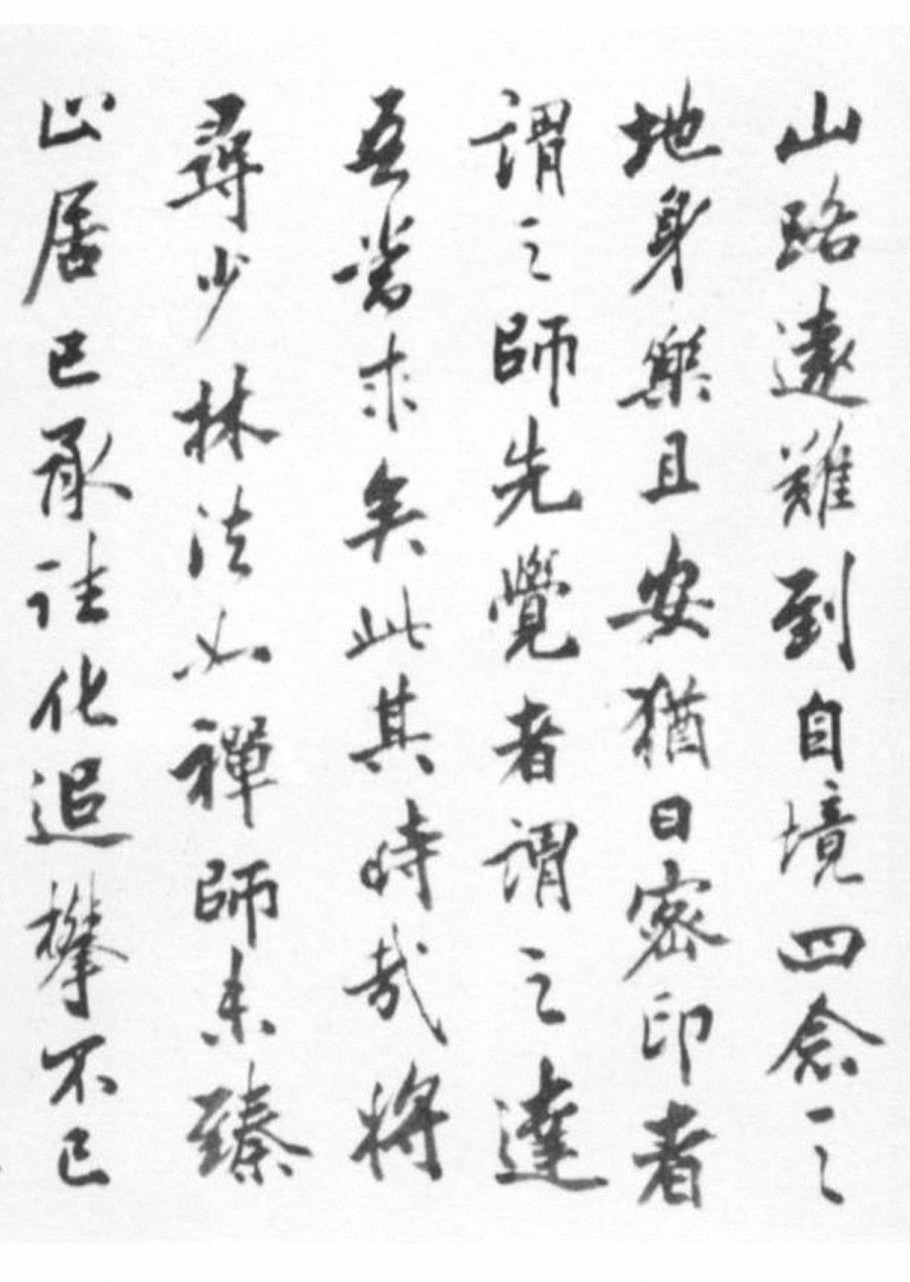 山路遠難到自境四念之
地身樂且安猶曰密印者
謂之師先覺者謂之達
吾嘗求矣此其時哉將
尋少林法如禪師未臻
止居已承往化追攀不已